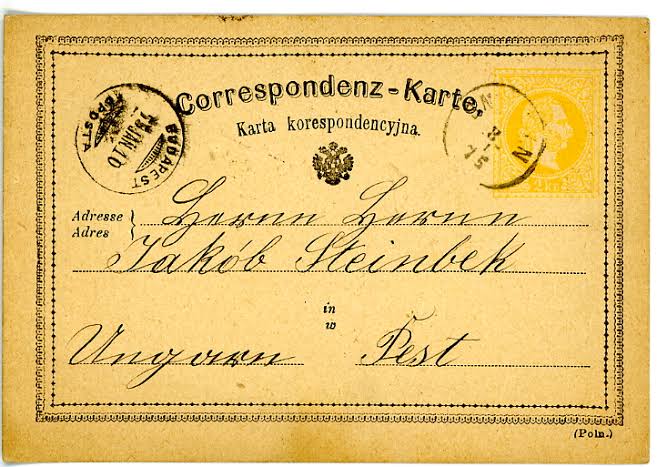 Correspondenz-Karte.
Karta korespondencyjna.
BUDAPEST
JAN 10
75
2 kr
Adresse
Adres
Herrn Herrn
Jakób Steinbek
in
w
Ungarn Pest
(Poln.)